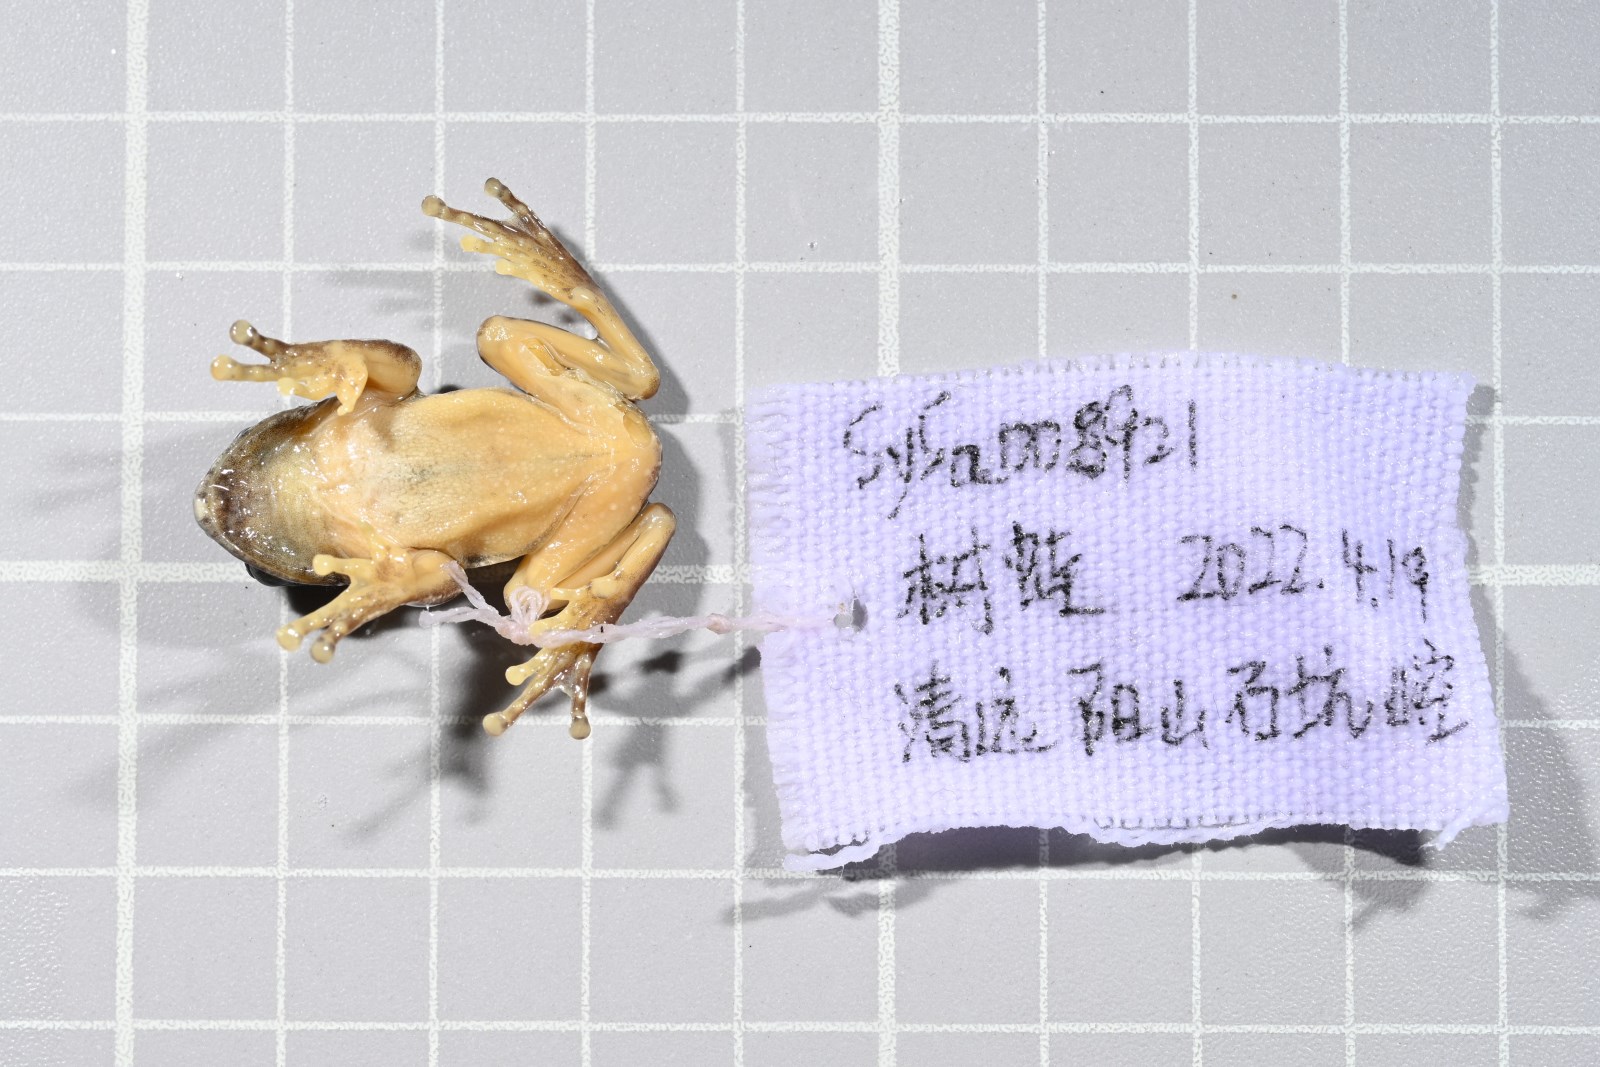 SYSa008921
树蛙 2022.4.19
清远 阳山 石坑崆